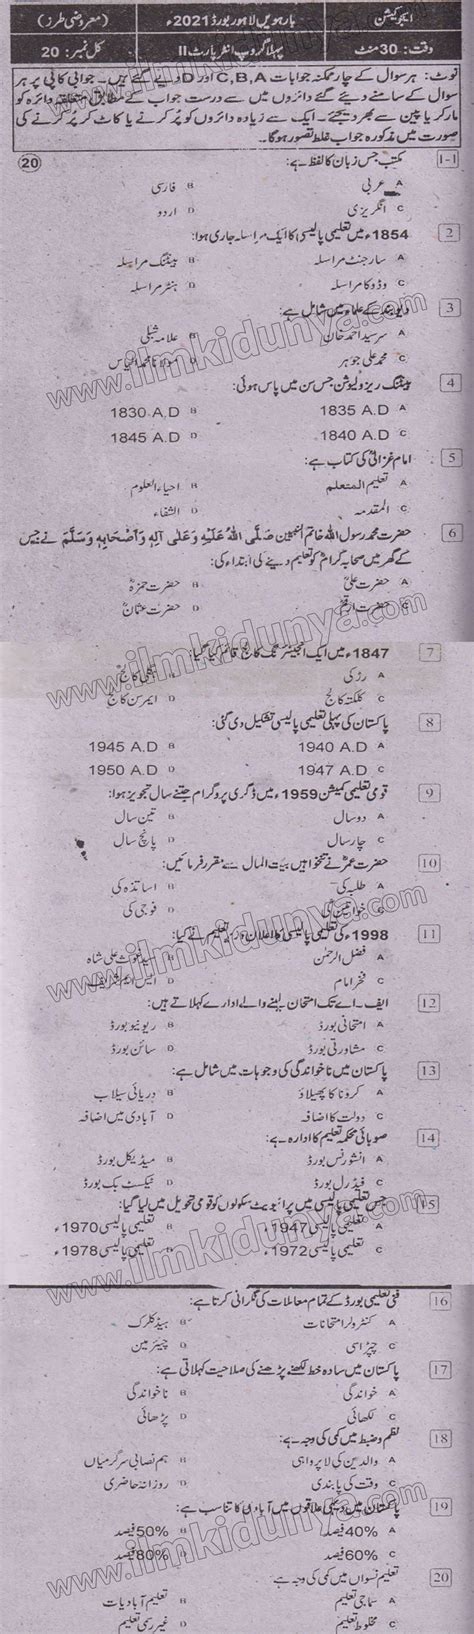 ایجوکیشن بارہویں لاہور بورڈ 2021ء (معروضی طرز)
وقت: 30 منٹ پہلا گروپ انٹر پارٹ II کل نمبر: 20
نوٹ: ہر سوال کے چار ممکنہ جوابات C,B,A اور D دیئے گئے ہیں۔ جوابی کاپی پر ہر
سوال کے سامنے دیئے گئے دائروں میں سے درست جواب کے مطابق متعلقہ دائرہ کو
مارکر یا پین سے بھر دیجئے۔ ایک سے زیادہ دائروں کو پُر کرنے یا کاٹ کر پُر کرنے کی
صورت میں مذکورہ جواب غلط تصور ہوگا۔
1-1 مکتب جس زبان کا لفظ ہے: 20
A عربی B فارسی
C انگریزی D اردو
2 1854ء میں تعلیمی پالیسی کا ایک مراسلہ جاری ہوا:
A سارجنٹ مراسلہ B بینٹنگ مراسلہ
C وڈ کا مراسلہ D ہنٹر مراسلہ
3 دیوبند کے علماء میں شامل ہے:
A سرسید احمد خان B علامہ شبلی
C محمد علی جوہر D مولانا محمد الیاس
4 بینٹنگ ریزولیوشن جس سن میں پاس ہوئی:
A 1835 A.D B 1830 A.D
C 1840 A.D D 1845 A.D
5 امام غزالیؒ کی کتاب ہے:
A تعلیم المتعلم B احیاء العلوم
C المقدمہ D الشفاء
6 حضرت محمد رسول اللہ خاتم النبیین صَلَّی اللہُ عَلَیْہِ وَعَلٰی آلِہٖ وَاَصْحَابِہٖ وَسَلَّمَ نے جس
کے گھر میں صحابہ کرامؓ کو تعلیم دینے کی ابتداء کی:
A حضرت علیؓ B حضرت حمزہؓ
C حضرت ارقمؓ D حضرت عثمانؓ
7 1847ء میں ایک انجینئرنگ کالج قائم کیا گیا:
A رڑکی B کالج
C کلکتہ کالج D ایمرسن کالج
8 پاکستان کی پہلی تعلیمی پالیسی تشکیل دی گئی:
A 1940 A.D B 1945 A.D
C 1947 A.D D 1950 A.D
9 قومی تعلیمی کمیشن 1959ء میں ڈگری پروگرام جتنے سال تجویز ہوا:
A دو سال B تین سال
C چار سال D پانچ سال
10 حضرت عمرؓ نے تنخواہیں بیت المال سے مقرر فرمائیں:
A طلبہ کی B اساتذہ کی
C خواتین کی D فوجی کی
11 1998ء کی تعلیمی پالیسی کا اعلان وزیر تعلیم نے کیا:
A فضل الرحمٰن B سید غوث علی شاہ
C فخر امام D ایس ایم شریف
12 ایف۔اے تک امتحان لینے والے ادارے کہلاتے ہیں:
A امتحانی بورڈ B ریونیو بورڈ
C مشاورتی بورڈ D سائن بورڈ
13 پاکستان میں ناخواندگی کی وجوہات میں شامل ہے:
A کرونا کا پھیلاؤ B دریائی سیلاب
C دولت کا اضافہ D آبادی میں اضافہ
14 صوبائی محکمہ تعلیم کا ادارہ ہے:
A انشورنس بورڈ B میڈیکل بورڈ
C فیڈرل بورڈ D ٹیکسٹ بک بورڈ
15 جس تعلیمی پالیسی میں پرائیویٹ سکولوں کو قومی تحویل میں لیا گیا:
A تعلیمی پالیسی 1947ء B تعلیمی پالیسی 1970ء
C تعلیمی پالیسی 1972ء D تعلیمی پالیسی 1978ء
16 فنی تعلیمی بورڈ کے تمام معاملات کی نگرانی کرتا ہے:
A کنٹرولر امتحانات B ہیڈ کلرک
C چپڑاسی D چیئرمین
17 پاکستان میں سادہ خط لکھنے، پڑھنے کی صلاحیت کہلاتی ہے:
A خواندگی B ناخواندگی
C لکھائی D پڑھائی
18 نظم و ضبط میں کمی کی وجہ ہے:
A والدین کی لا پرواہی B ہم نصابی سرگرمیاں
C وقت کی پابندی D روزانہ حاضری
19 پاکستان میں دیہی علاقوں میں آبادی کا تناسب ہے:
A 40% فیصد B 50% فیصد
C 60% فیصد D 80% فیصد
20 تعلیم نسواں میں کمی کی وجہ ہے:
A سماجی تعلیم B تعلیم آبادیات
C مخلوط تعلیم D غیر رسمی تعلیم
www.ilmkidunya.com